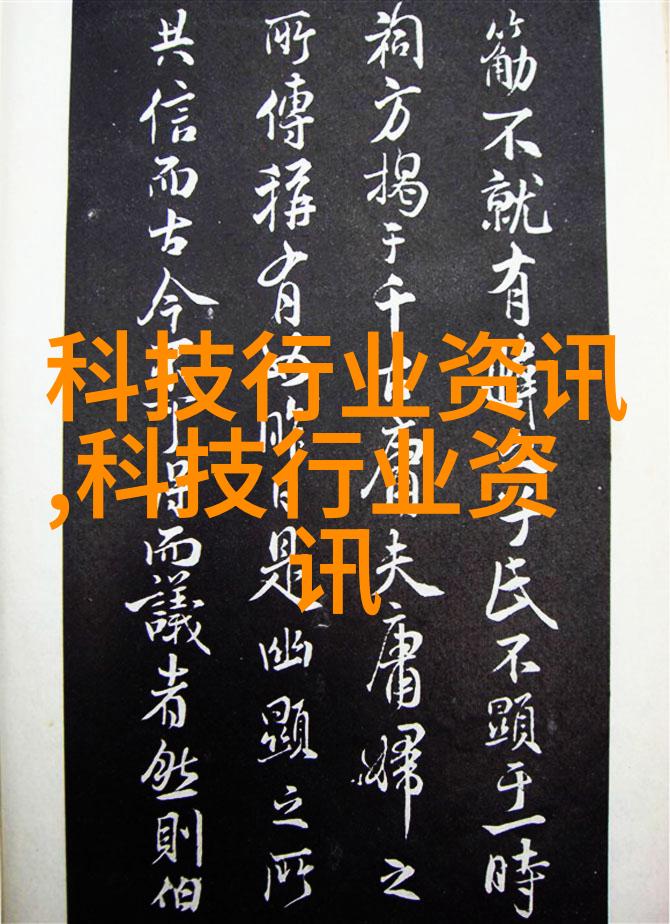 不就有于氏不顯于一時
祠方揭于千古庸夫庸婦之
所傳稱有昨日是幽顯之所
共信而古今可得而議者然則伯
科技行业资讯
,科技行业资
讯